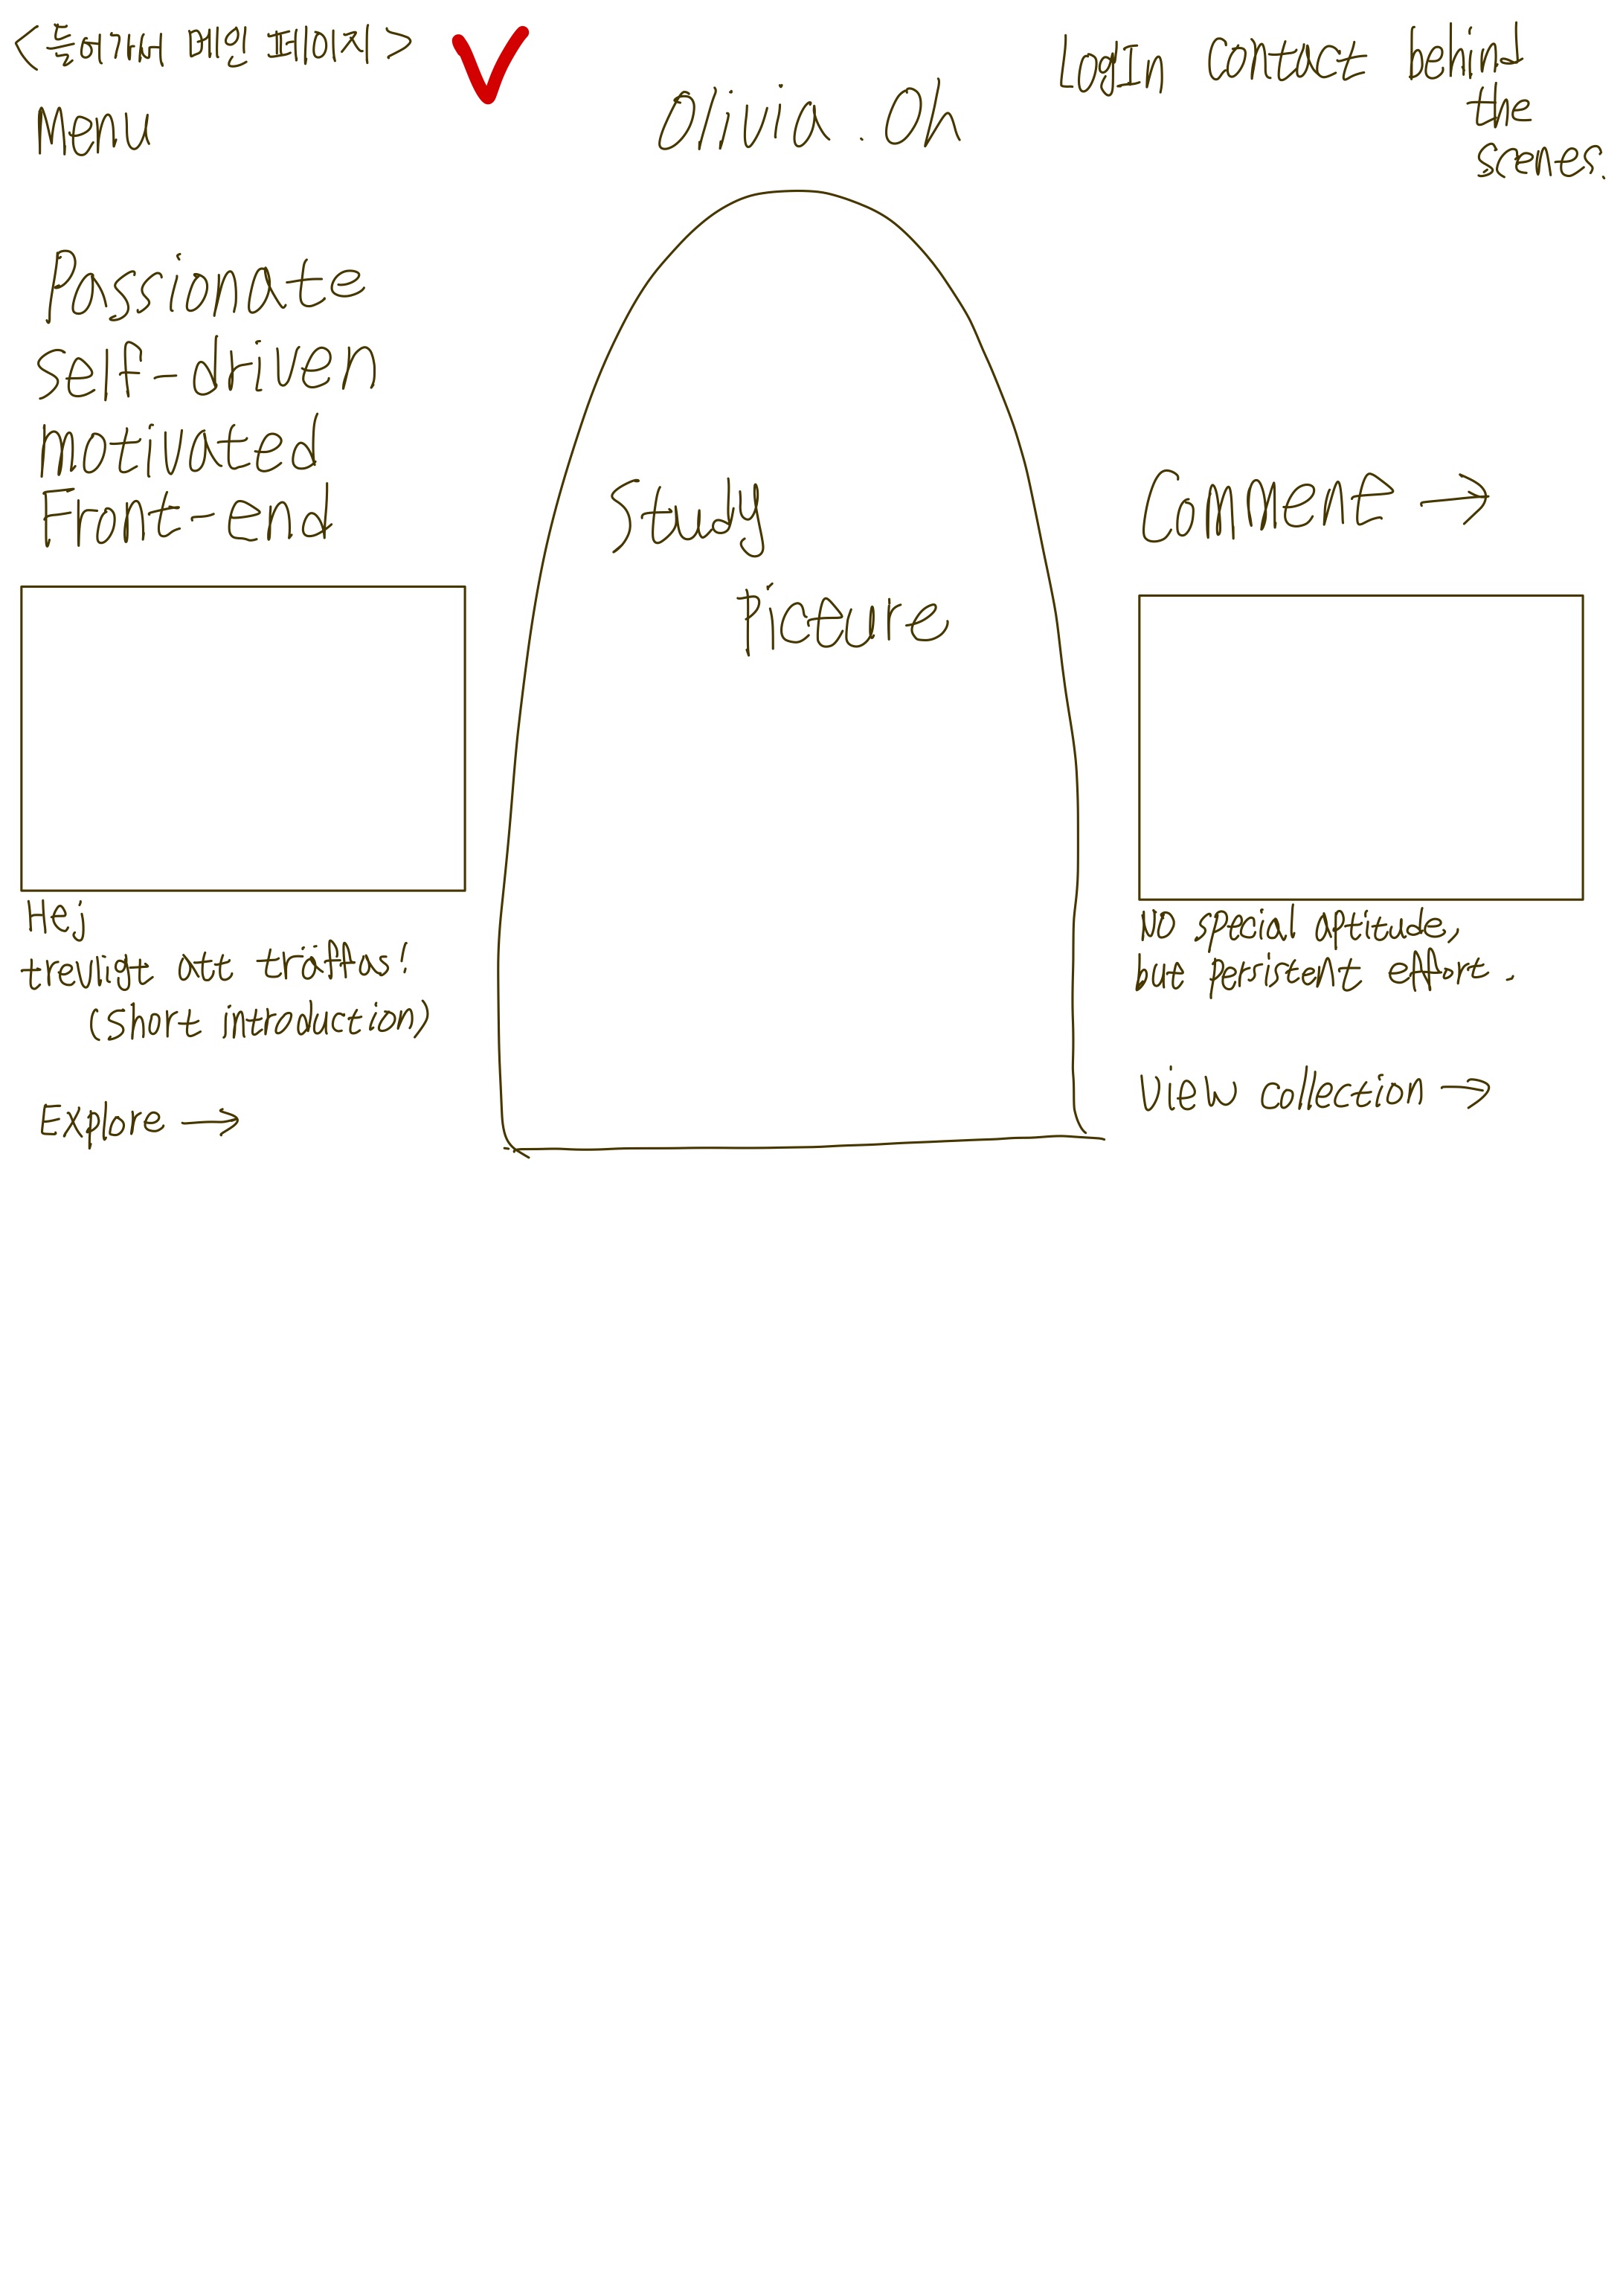 <홀어가서 메인 페이지>
Menu
Olivia.Oh
LogIn contact behind
the
scenes.
Passionate
Self-driven
motivated
Front-end
Study
Picture
Comment →
Hej
trevligt att träffas!
(short introduction)
Explore →
No special aptitude,
but persistent effort.
View collection →